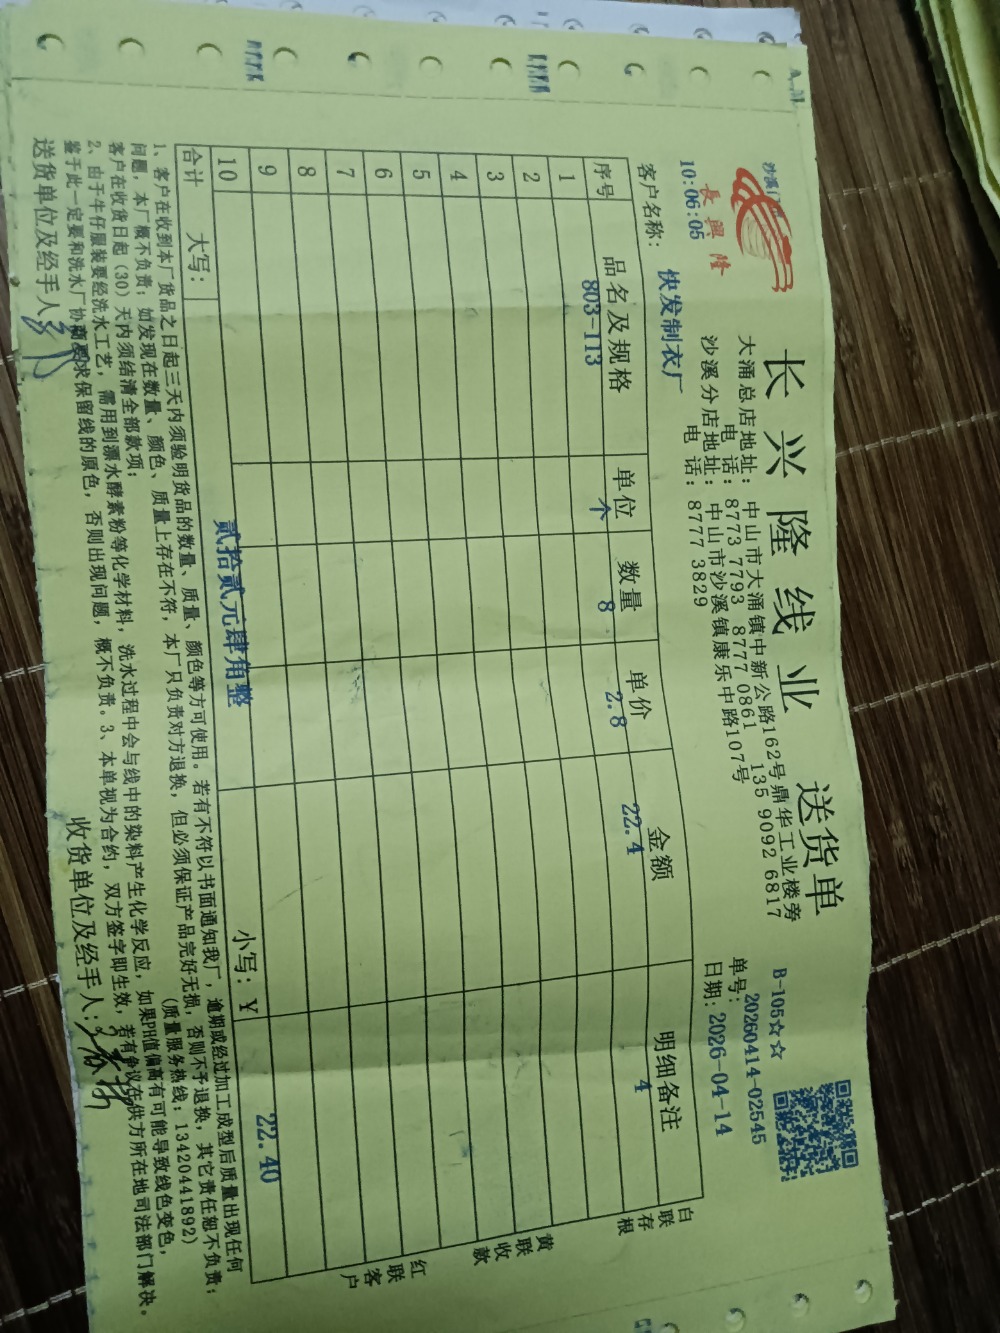 長興隆
10:06:05
长兴隆线业 送货单
大涌总店地址:中山市大涌镇中新公路162号鼎华工业楼旁
电 话:8773 7793 8777 0861 135 9092 6817
沙溪分店地址:中山市沙溪镇康乐中路107号
电 话:8777 3829
B-105☆☆
单号:20260414-02545
日期:2026-04-14
客户名称: 快发制衣厂
序号 品名及规格 单位 数量 单价 金额 明细备注
1 803-113 个 8 2.8 22.4 4
2
3
4
5
6
7
8
9
10
合计 大写: 贰拾贰元肆角整 小写:¥ 22.40
白联存根
黄联收款
红联客户
1、客户在收到本厂货品之日起三天内须验明货品的数量、质量、颜色等方可使用。若有不符以书面通知我厂,逾期或经过加工成型后质量出现任何
问题,本厂概不负责;如发现在数量、颜色、质量上存在不符,本厂只负责对方退换,但必须保证产品完好无损,否则不予退换,其它责任恕不负责;
客户在收货日起(30)天内须结清全部款项; (质量服务热线:13420441892)
2、由于牛仔服装要经洗水工艺,需用到漂水酵素粉等化学材料,洗水过程中会与线中的染料产生化学反应,如果PH值偏高有可能导致线色变色,
鉴于此一定要和洗水厂协商要求保留线的原色,否则出现问题,概不负责。3、本单视为合约,双方签字即生效,若有争议在供方所在地司法部门解决。
送货单位及经手人: 收货单位及经手人: